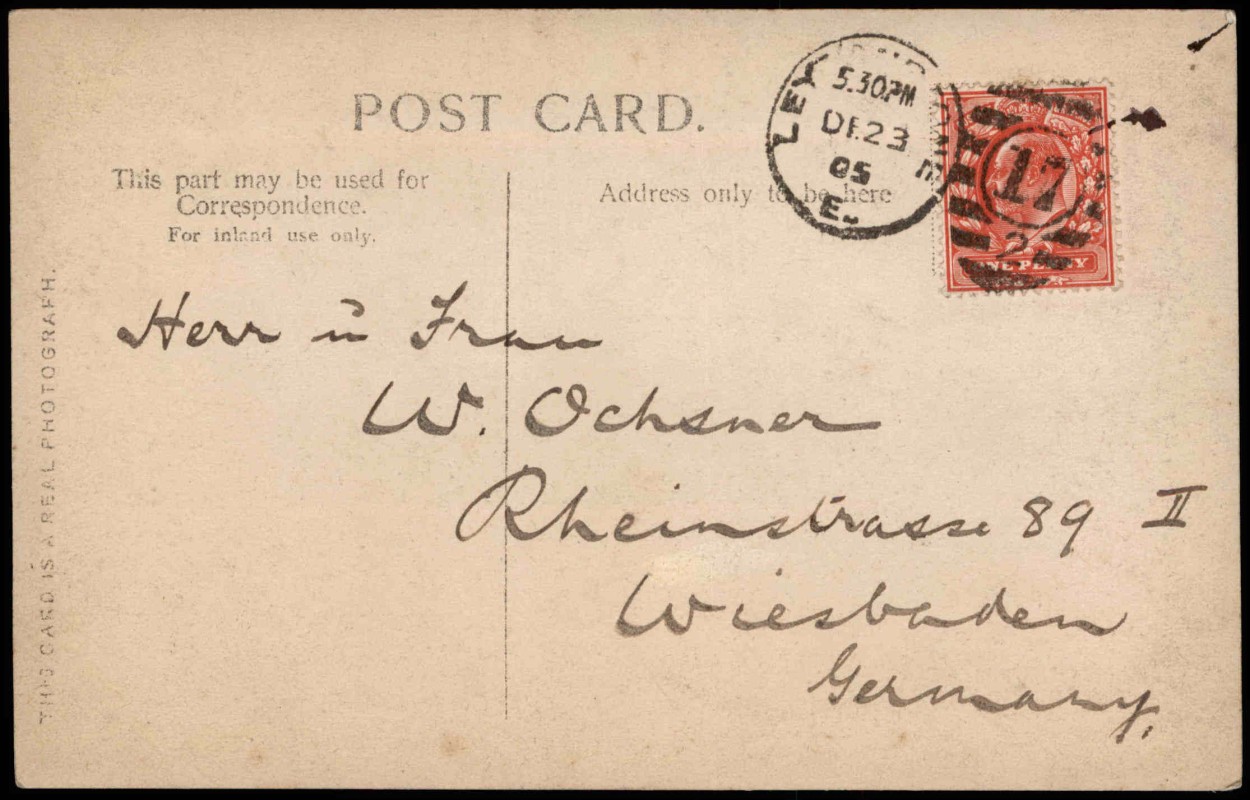 POST CARD.
This part may be used for
Correspondence.
For inland use only.
Address only to be here
LEY
5.30PM
DE23
05
E.
17
2
ONE PENNY
Herr u Frau
W. Ochsner
Rheinstrasse 89 II
Wiesbaden
Germany,
THIS CARD IS A REAL PHOTOGRAPH.